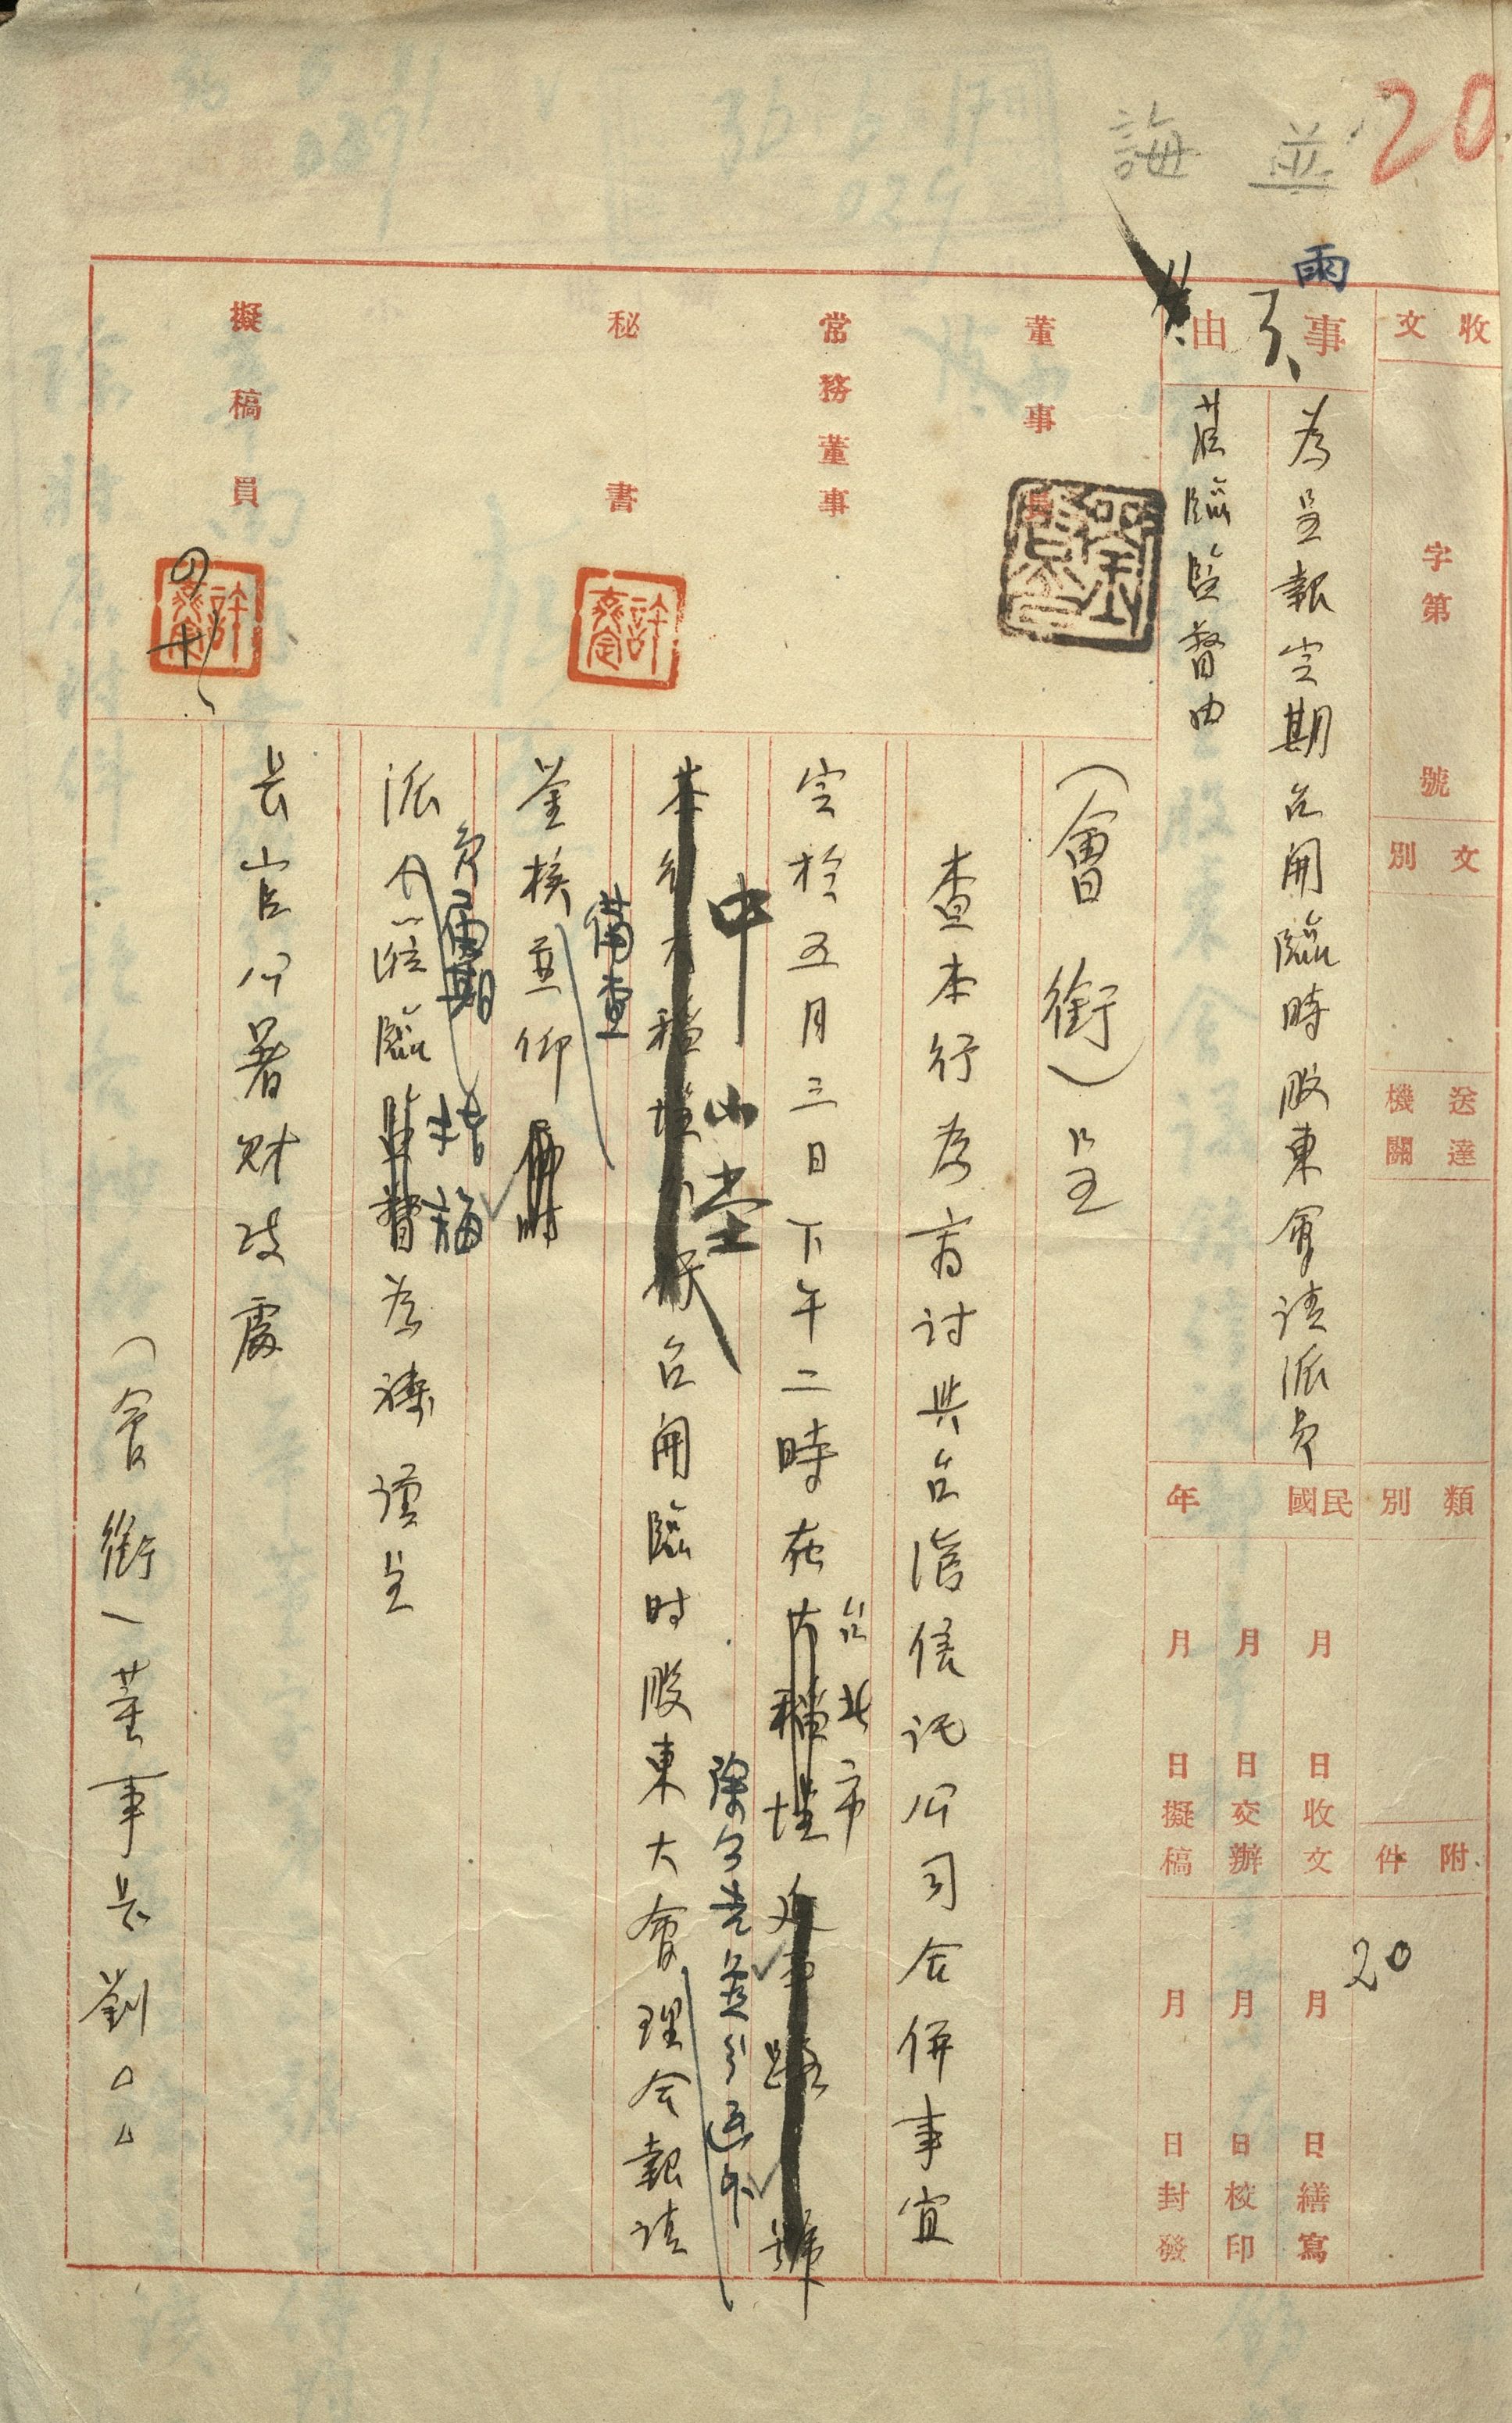 20
並
誨
雨
收文
字第 號
文別
送達機關
類別
附件
20
事由
為呈報定期召開臨時股東會請派員
蒞臨監督由
民國 年
月 日收文
月 日交辦
月 日擬稿
月 日繕寫
月 日校印
月 日封發
董事長
常務董事
秘書
擬稿員
(會銜)呈
查本行為商討與台灣信託公司合併事宜
定於五月三日下午二時在
台北市
中山堂
召開臨時股東大會理合報請
除分
備查
鑒核並仰
員屆期
指
派
蒞臨
為禱謹呈
長官公署財政處
(會銜)董事長劉